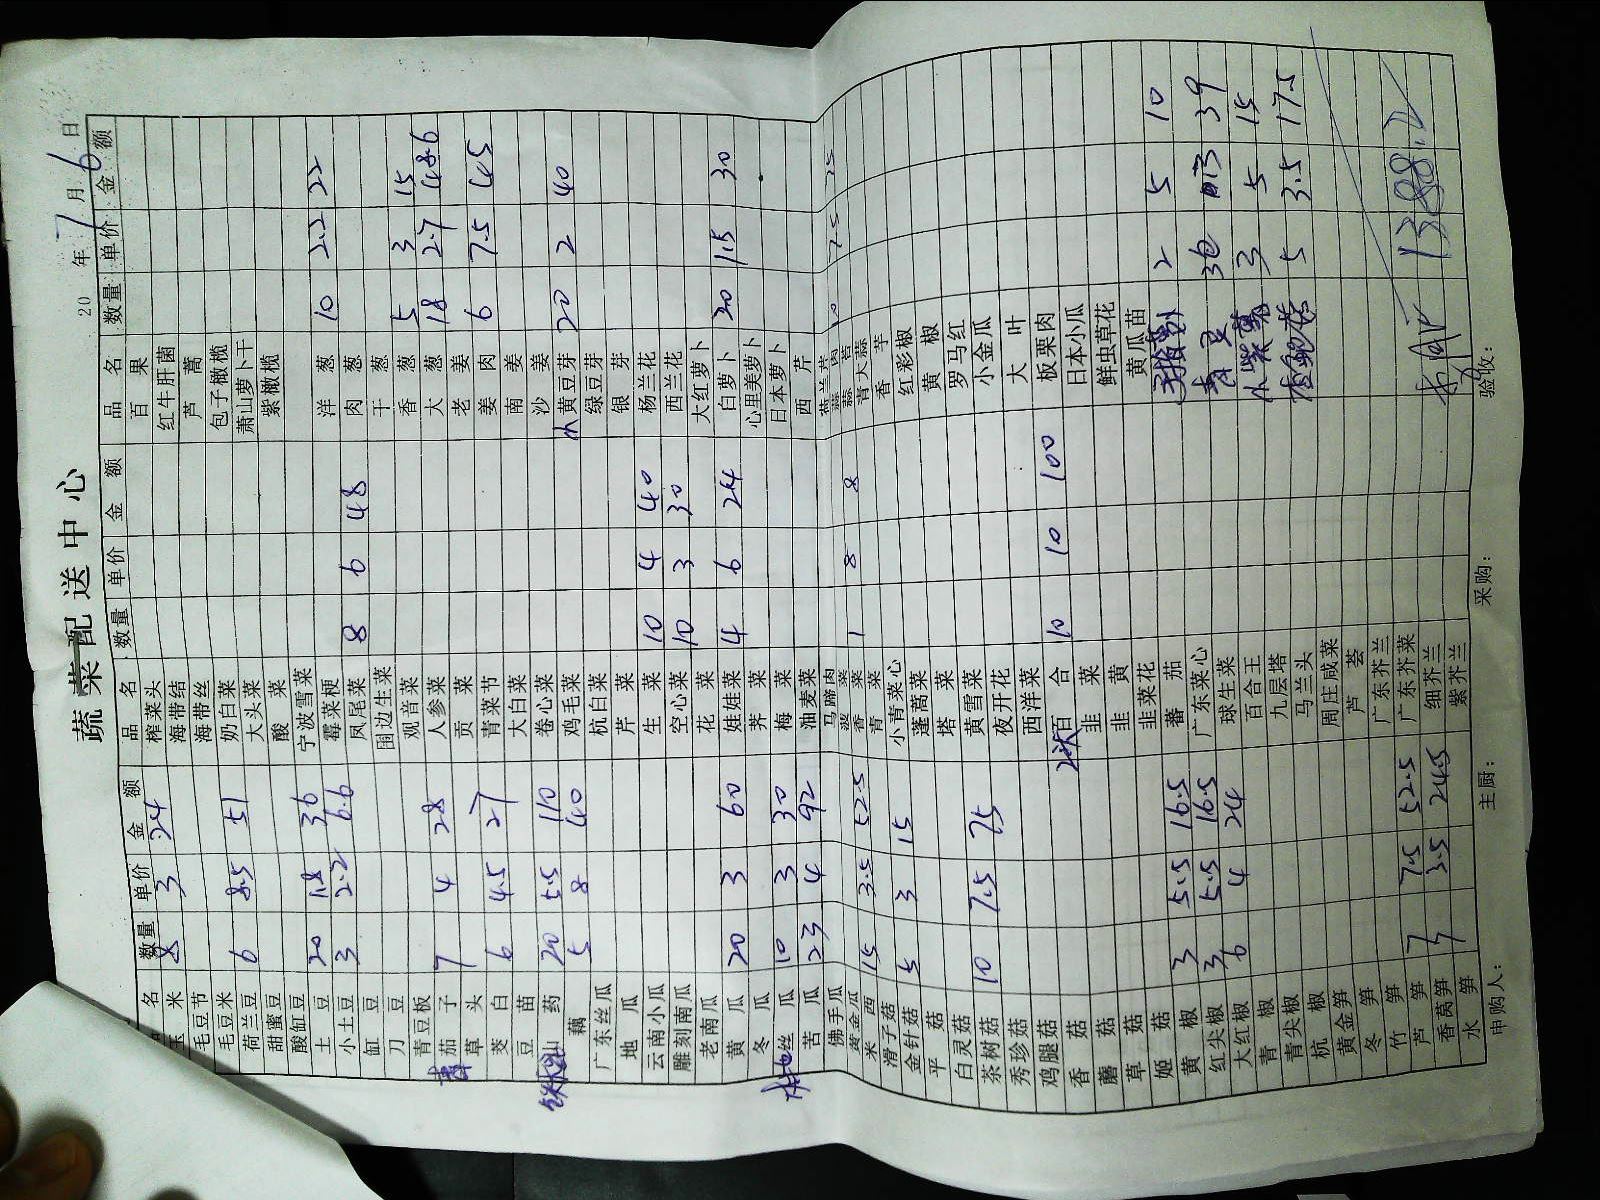 蔬菜配送中心
20 年 7 月 6 日
品名 数量 单价 金额
玉米 8 3 24
毛豆节
毛豆米
荷兰豆 6 8.5 51
甜蜜豆
酸缸豆
土豆 20 1.8 36
小土豆 3 2.2 6.6
缸豆
刀豆
青豆板
茄子 7 4 28
草头
茭白 6 4.5 27
豆苗
山药 20 5.5 110
藕 5 8 40
广东丝瓜
地瓜
云南小瓜
雕刻南瓜
老南瓜
黄瓜 20 3 60
冬瓜
本地丝瓜 10 3 30
苦瓜 23 4 92
佛手瓜
黄金瓜
米西 15 3.5 52.5
滑子菇
金针菇 5 3 15
平菇
白灵菇
茶树菇 10 7.5 75
秀珍菇
鸡腿菇
香菇
蘑菇
草菇
姬菇
黄椒 3 5.5 16.5
红尖椒 3 5.5 16.5
大红椒 6 4 24
青椒
青尖椒
杭椒
黄金笋
冬笋
竹笋
芦笋 7 7.5 52.5
香莴笋 7 3.5 24.5
水笋
品名 数量 单价 金额
榨菜头
海带结
海带丝
奶白菜
大头菜
酸菜
宁波雪菜
霉菜梗
凤尾菜 8 6 48
围边生菜
观音菜
人参菜
贡菜
青菜节
大白菜
卷心菜
鸡毛菜
杭白菜
芹菜
生菜 10 4 40
空心菜 10 3 30
花菜
娃娃菜 4 6 24
荠菜
梅菜
油麦菜
马蹄肉
菠菜
香菜 1 8 8
青菜
小青菜心
蓬蒿菜
塔菜
黄雪菜
夜开花
西洋菜
2头百合 10 10 100
韭菜
韭黄
韭菜花
蕃茄
广东菜心
球生菜
百合王
九层塔
马兰头
周庄咸菜
芦荟
广东芥兰
广东芥菜
细芥兰
紫芥兰
品名 数量 单价 金额
百果
红牛肝菌
芦蒿
包子橄榄
萧山萝卜干
紫橄榄
洋葱 10 2.2 22
肉葱
干葱
香葱 5 3 15
大葱 18 2.7 48.6
老姜 6 7.5 45
姜肉
南姜
沙姜
小黄豆芽 20 2 40
绿豆芽
银芽
杨兰花
西兰花
大红萝卜
白萝卜 20 1.5 30
心里美萝卜
日本萝卜
西芹
蒜肉
蒜苔 10 7.5 75
青大蒜
香芋
红彩椒
黄椒
罗马红
小金瓜
大叶
板栗肉
日本小瓜
鲜虫草花
黄瓜苗
2 5 10
青豆 3包 13 39
小紫薯 3 5 15
5 3.5 17.5
1388.2
申购人：
主厨：
采购：
验收：